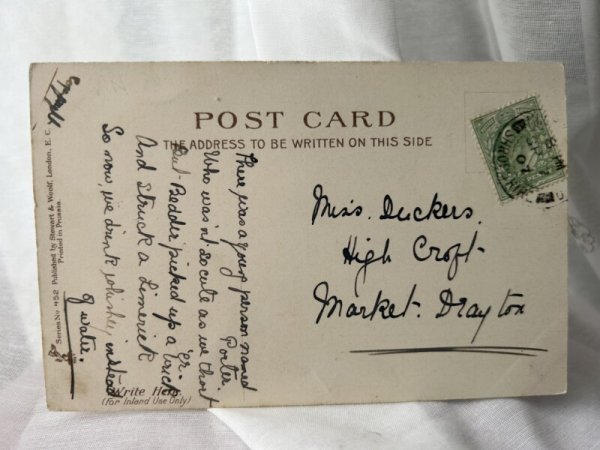 POST CARD
THE ADDRESS TO BE WRITTEN ON THIS SIDE
There was a young person named
Porter.
Who wasn't so cute as we thort
'er.
But Bedder picked up a brick
And struck a Limerick
So now, we drink whiskey instead
of water.
Miss. Duckers.
High Croft
Market. Drayton
Write Here.
(For Inland Use Only)
Series No 452 Published by Stewart & Woolf, London, E. C.
Printed in Prussia.